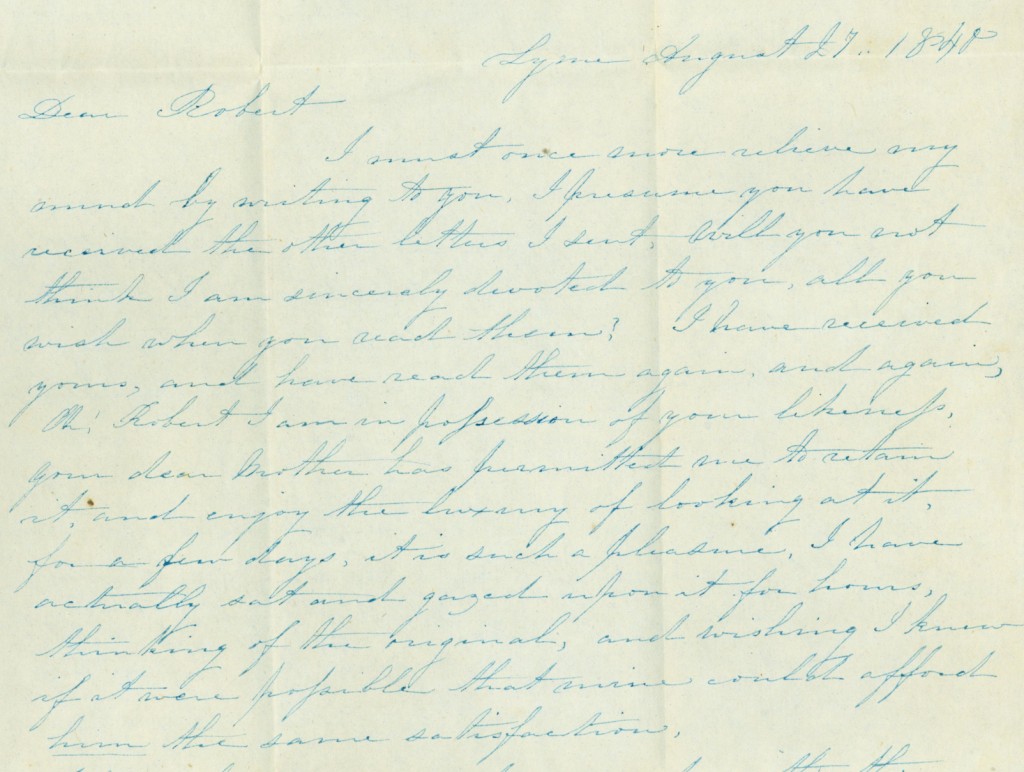 Lyme August 27.. 1848
Dear Robert
I must once more relieve my
mind by writing to you, I presume you have
received the other letters I sent. Will you not
think I am sinceraly devoted to you, all you
wish when you read them? I have received
yours, and have read them again, and again,
Oh! Robert I am in possession of your likeness,
your dear Brother has permitted me to retain
it, and enjoy the luxury of looking at it,
for a few days, it is such a pleasure, I have
actually sat and gazed upon it for hours,
thinking of the original, and wishing I knew
if it were possible that mine could afford
him the same satisfaction.